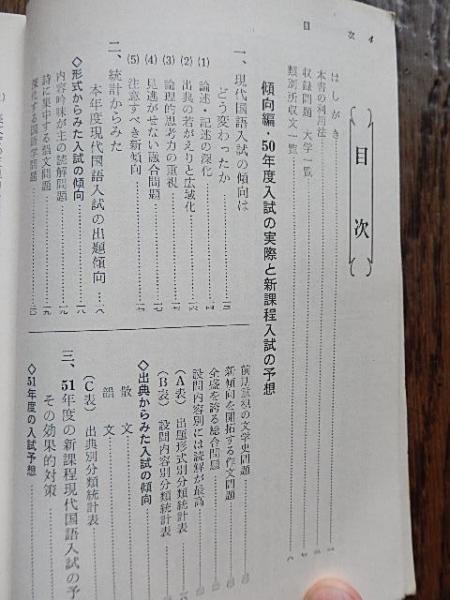 目次 4
目次
はしがき
本書の利用法
収録問題・大学一覧
類別所収文一覧
傾向編・50年度入試の実際と新課程入試の予想
一、現代国語入試の傾向は
どう変わったか
(1) 論述・記述の深化
(2) 出典の若がえりと広域化
(3) 論理的思考力の重視
(4) 見逃がせない融合問題
(5) 注意すべき新傾向
二、統計からみた
本年度現代国語入試の出題傾向…八
◇形式からみた入試の傾向
内容吟味が主の読解問題
詩に集中する韻文問題
深化する国語学問題
前期重視の文学史問題
新傾向を開拓する作文問題
全盛を誇る総合問題
設問内容別には読解が最高
(A表) 出題形式別分類統計表
(B表) 設問内容別分類統計表
◇出典からみた入試の傾向
散文
韻文
(C表) 出典別分類統計表
三、51年度の新課程現代国語入試の予
その効果的対策
◇51年度の入試予想